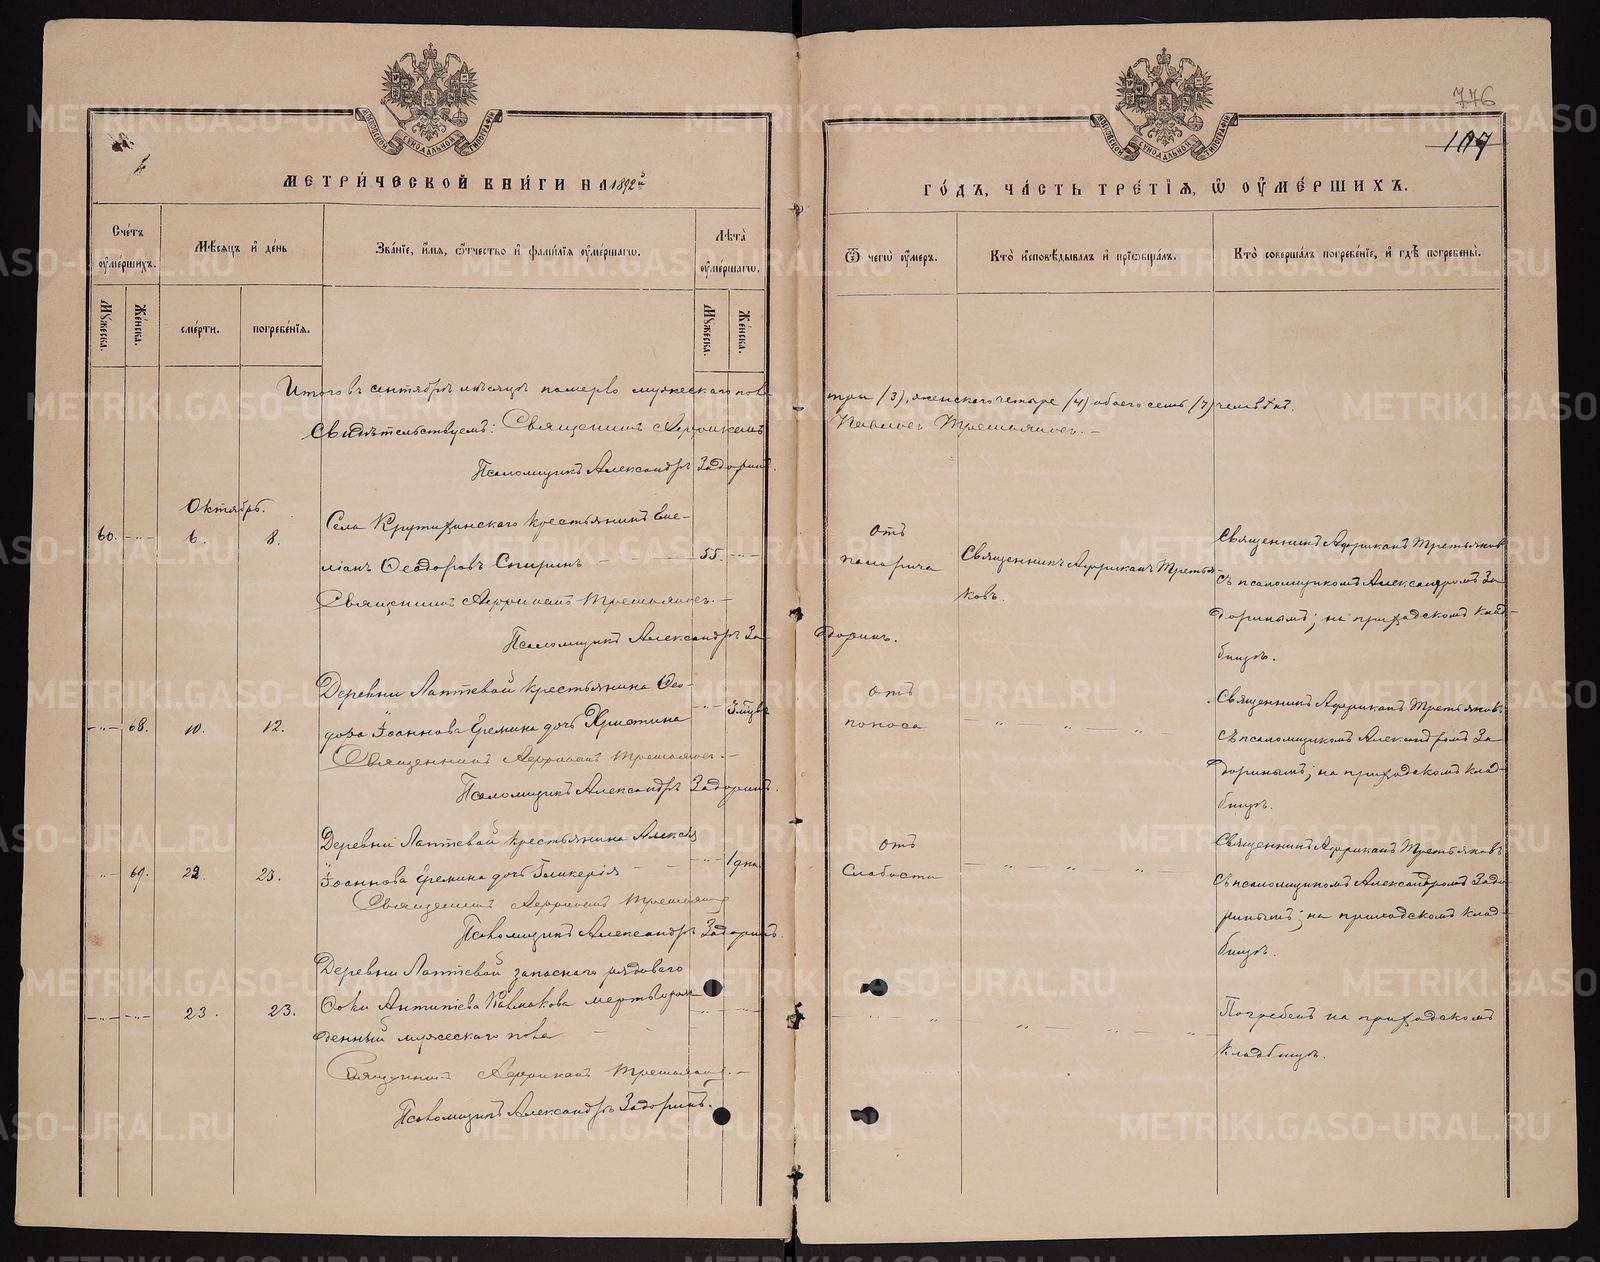 776
107
МОСКОВСКОЙ СѴНОДАЛЬНОЙ ТИПОГРАФІИ
МОСКОВСКОЙ СѴНОДАЛЬНОЙ ТИПОГРАФІИ
МЕТРИ́ЧЕСКОЙ КНИ́ГИ НА 1892й
ГО́ДЪ, ЧА́СТЬ ТРЕ́ТІѦ, Ѽ ОУ҆МЕ́РШИХЪ.
Сче́тъ оу҆ме́ршихъ.
Мѣ́сѧцъ и҆ де́нь
Зва́нїе, и҆́мѧ, ѻ҆́тчество и҆ фами́лїѧ оу҆ме́ршагѡ.
Лѣ́та оу҆ме́ршагѡ.
Ѿ чегѡ̀ оу҆́меръ.
Кто̀ и҆сповѣ́дывалъ и҆ прїѡбща́лъ.
Кто̀ соверша́лъ погребе́нїе, и҆ гдѣ̀ погребены̀.
Мꙋ́жеска.
Же́нска.
сме́рти.
погребе́нїѧ.
Мꙋ́жеска.
Же́нска.
Итого въ сентябрѣ мѣсяцѣ померло мужескаго пола
три (3), женскаго четыре (4) обоего семь (7) человѣкъ.
Свидѣтельствуемъ: Священникъ Африканъ
Павловъ Третьяковъ.
Псаломщикъ Александръ Задоринъ.
Октябрь.
60. 6. 8.
Села Крутихинскаго крестьянинъ Еме-
ліанъ Ѳеодоровъ Спиринъ 55.
Священникъ Африканъ Третьяковъ.
Псаломщикъ Александръ За
доринъ.
отъ
паралича
Священникъ Африканъ Третья-
ковъ.
Священникъ Африканъ Третьяковъ
съ псаломщикомъ Александромъ За
доринымъ; на приходскомъ клад-
бищѣ.
68. 10. 12.
Деревни Лаптевой крестьянина Ѳео-
дора Іоаннова Еремина дочь Христина
3 мѣсяца
Священникъ Африканъ Третьяковъ.
Псаломщикъ Александръ Задоринъ.
отъ
поноса
Священникъ Африканъ Третьяковъ
съ псаломщикомъ Александромъ За
доринымъ; на приходскомъ клад-
бищѣ.
69. 22. 23.
Деревни Лаптевой крестьянина Алексѣя
Іоаннова Еремина дочь Гликерія
1 дня
Священникъ Африканъ Третьяковъ
Псаломщикъ Александръ Задоринъ.
отъ
слабости
Священникъ Африканъ Третьяковъ
съ псаломщикомъ Александромъ Задо
ринымъ; на приходскомъ клад-
бищѣ.
23. 23.
Деревни Лаптевой запаснаго рядоваго
Ѳоки Антипіева мертворож
денный мужескаго пола
Священникъ Африканъ Третьяковъ.
Псаломщикъ Александръ Задоринъ.
Погребенъ на приходскомъ
кладбищѣ.
METRIKI.GASO-URAL.RU